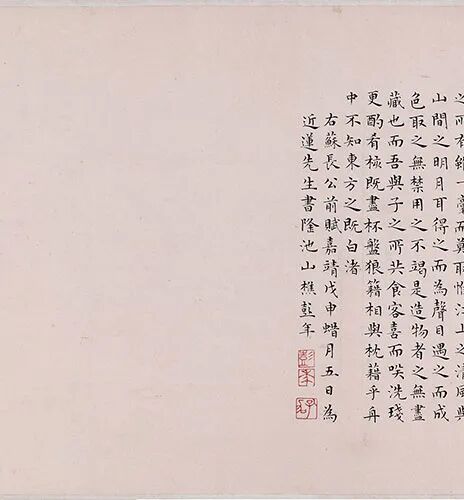 之所有雖一毫而莫取惟江上之清風與
山間之明月耳得之而為聲目遇之而成
色取之無禁用之不竭是造物者之無盡
藏也而吾與子之所共食客喜而咲洗琖
更酌肴核既盡杯盤狼籍相與枕藉乎舟
中不知東方之既白渚
右蘇長公前賦嘉靖戊申蜡月五日為
近蓮先生書隆池山樵彭年
彭年